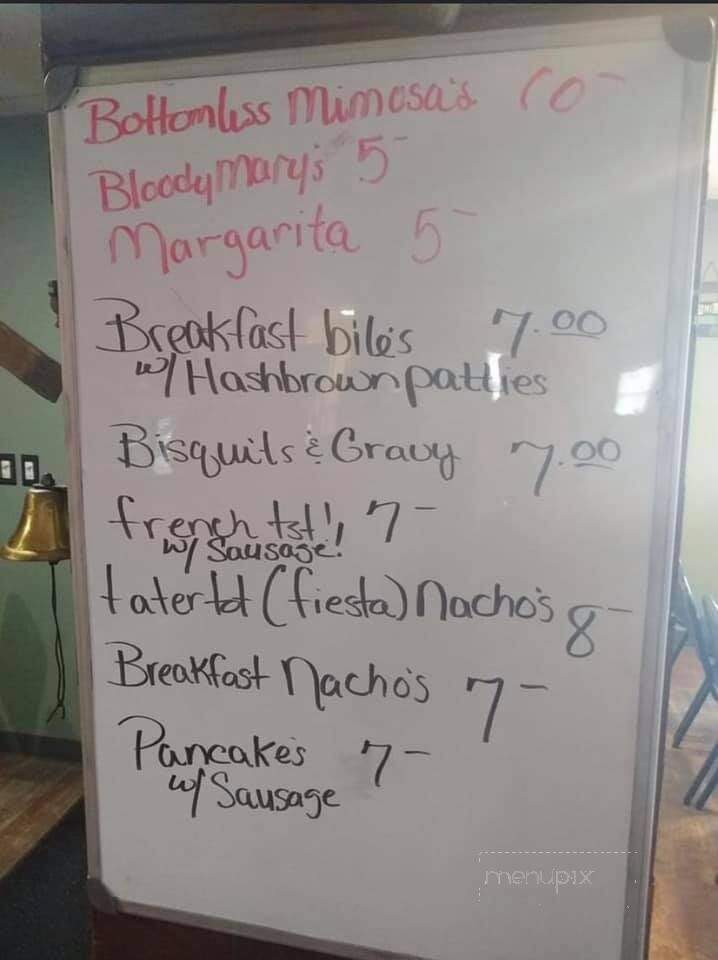 Bottomless Mimosa's 10-
Bloody Mary's 5-
Margarita 5-
Breakfast bite's 7.00
w/ Hashbrown patties
Bisquits & Gravy 7.00
french tst! 7-
w/ Sausage!
tatertot (fiesta) Nacho's 8-
Breakfast Nacho's 7-
Pancake's 7-
w/ Sausage
menupix